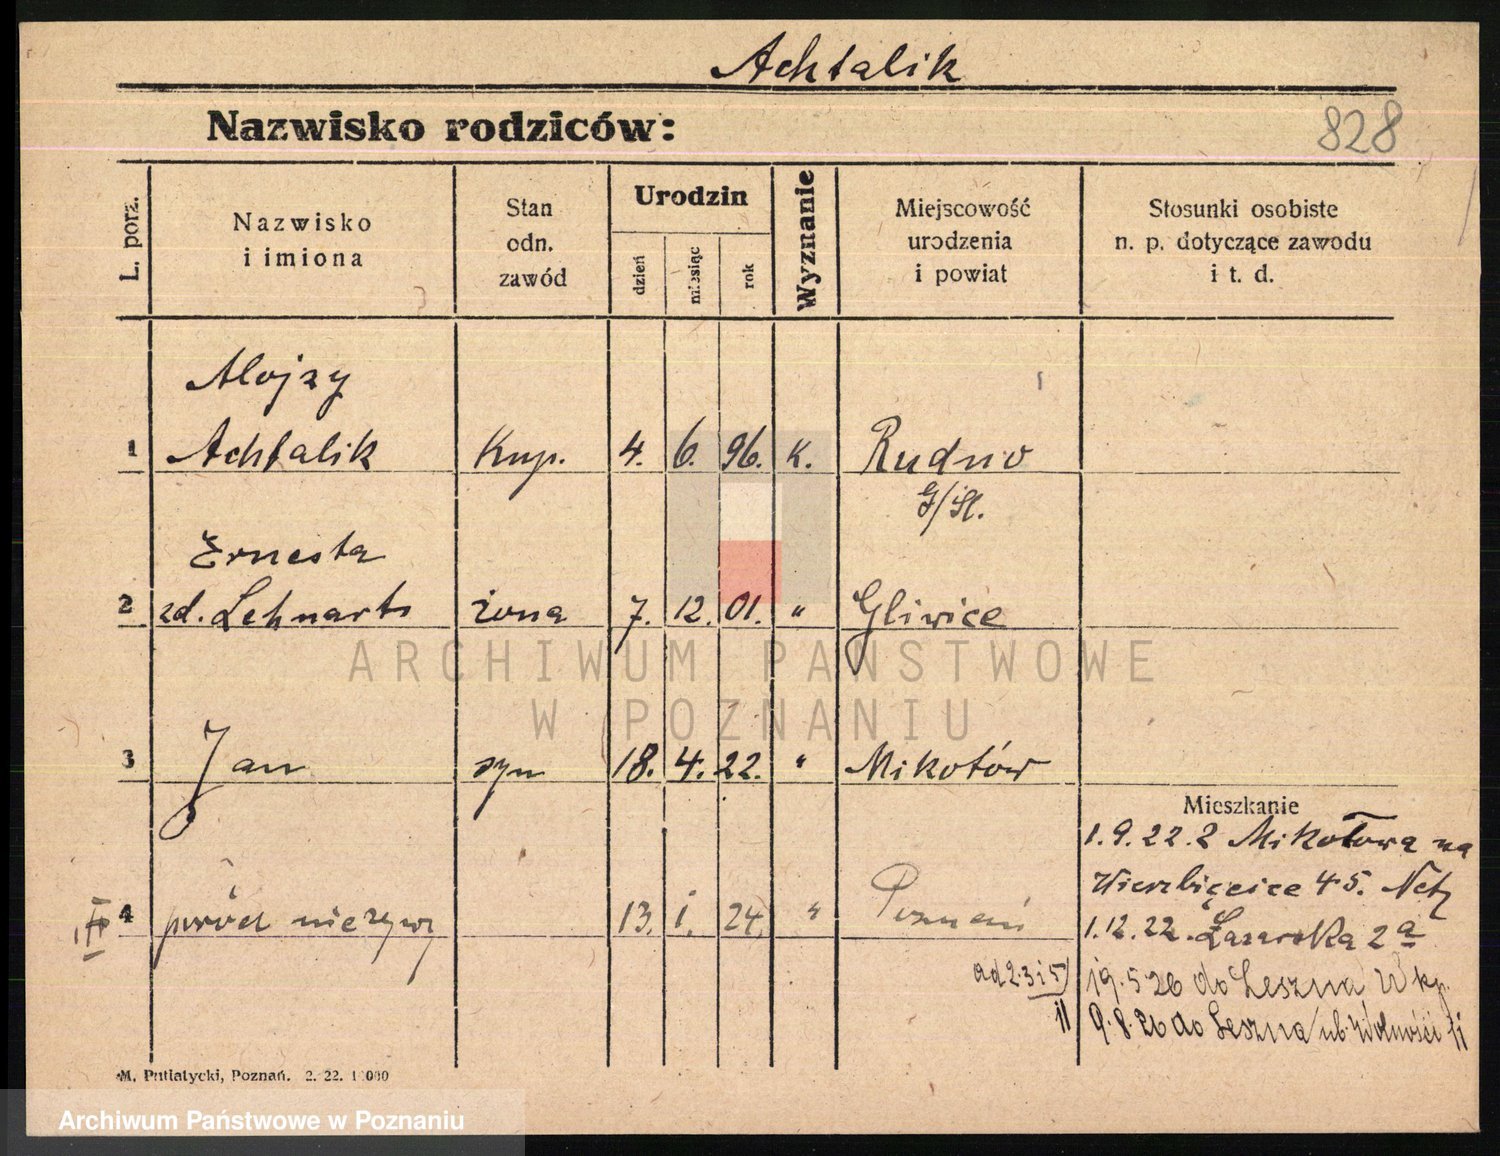 Achtalik
Nazwisko rodziców:
828
L. porz.
Nazwisko
i imiona
Stan
odn.
zawód
Urodzin
dzień
miesiąc
rok
Wyznanie
Miejscowość
urodzenia
i powiat
Stosunki osobiste
n. p. dotyczące zawodu
i t. d.
Alojzy
1 Achtalik Kup. 4. 6. 96. K. Rudno
G/Śl.
Ernesta
2 zd. Lehnarts żona 7. 12. 01. " Gliwice
ARCHIWUM PAŃSTWOWE
W POZNANIU
3 Jan syn 18. 4. 22. " Mikołów
Mieszkanie
1.9.22. z Mikołowa na
Wierzbięcice 45.
4 poród nieżywy 13. i. 24. " Poznań
1.12.22. Łazarska 2a
ad 2.3 i 5/ 19.5.26 do Leszna Wkp.
9.8.26 do Leszna ul. Wolności 11
M. Putiatycki, Poznań. 2. 22. 1 000
Archiwum Państwowe w Poznaniu